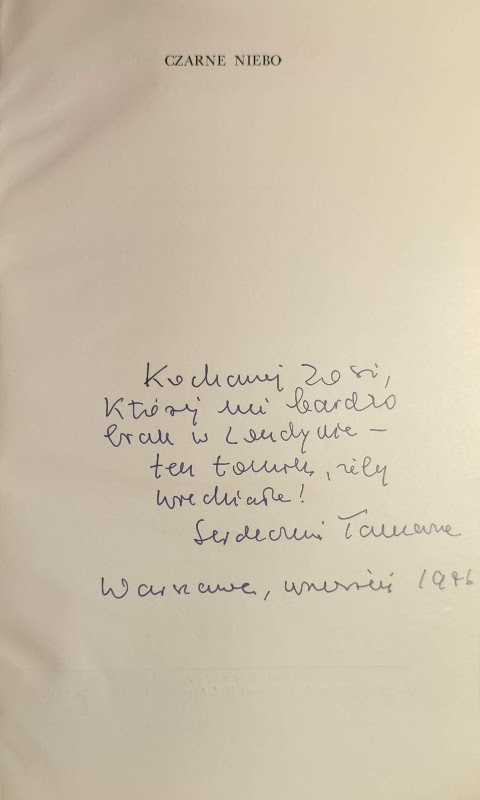 CZARNE NIEBO
Kochanej Zosi,
której mi bardzo
brak w Londynie –
ten tomik, żeby
wiedziała!
Serdecznie Tamara
Warszawa, wrzesień